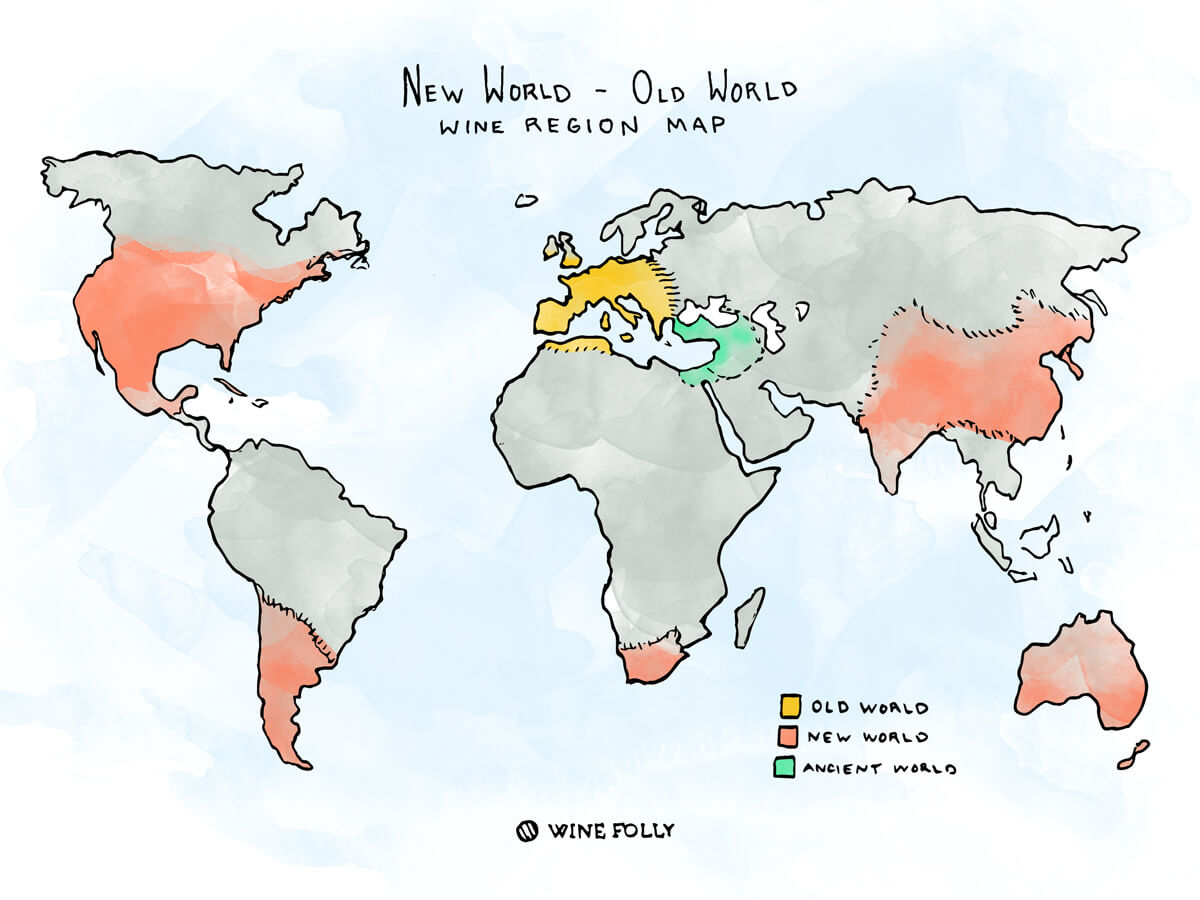 NEW WORLD - OLD WORLD
WINE REGION MAP
OLD WORLD
NEW WORLD
ANCIENT WORLD
WINE FOLLY